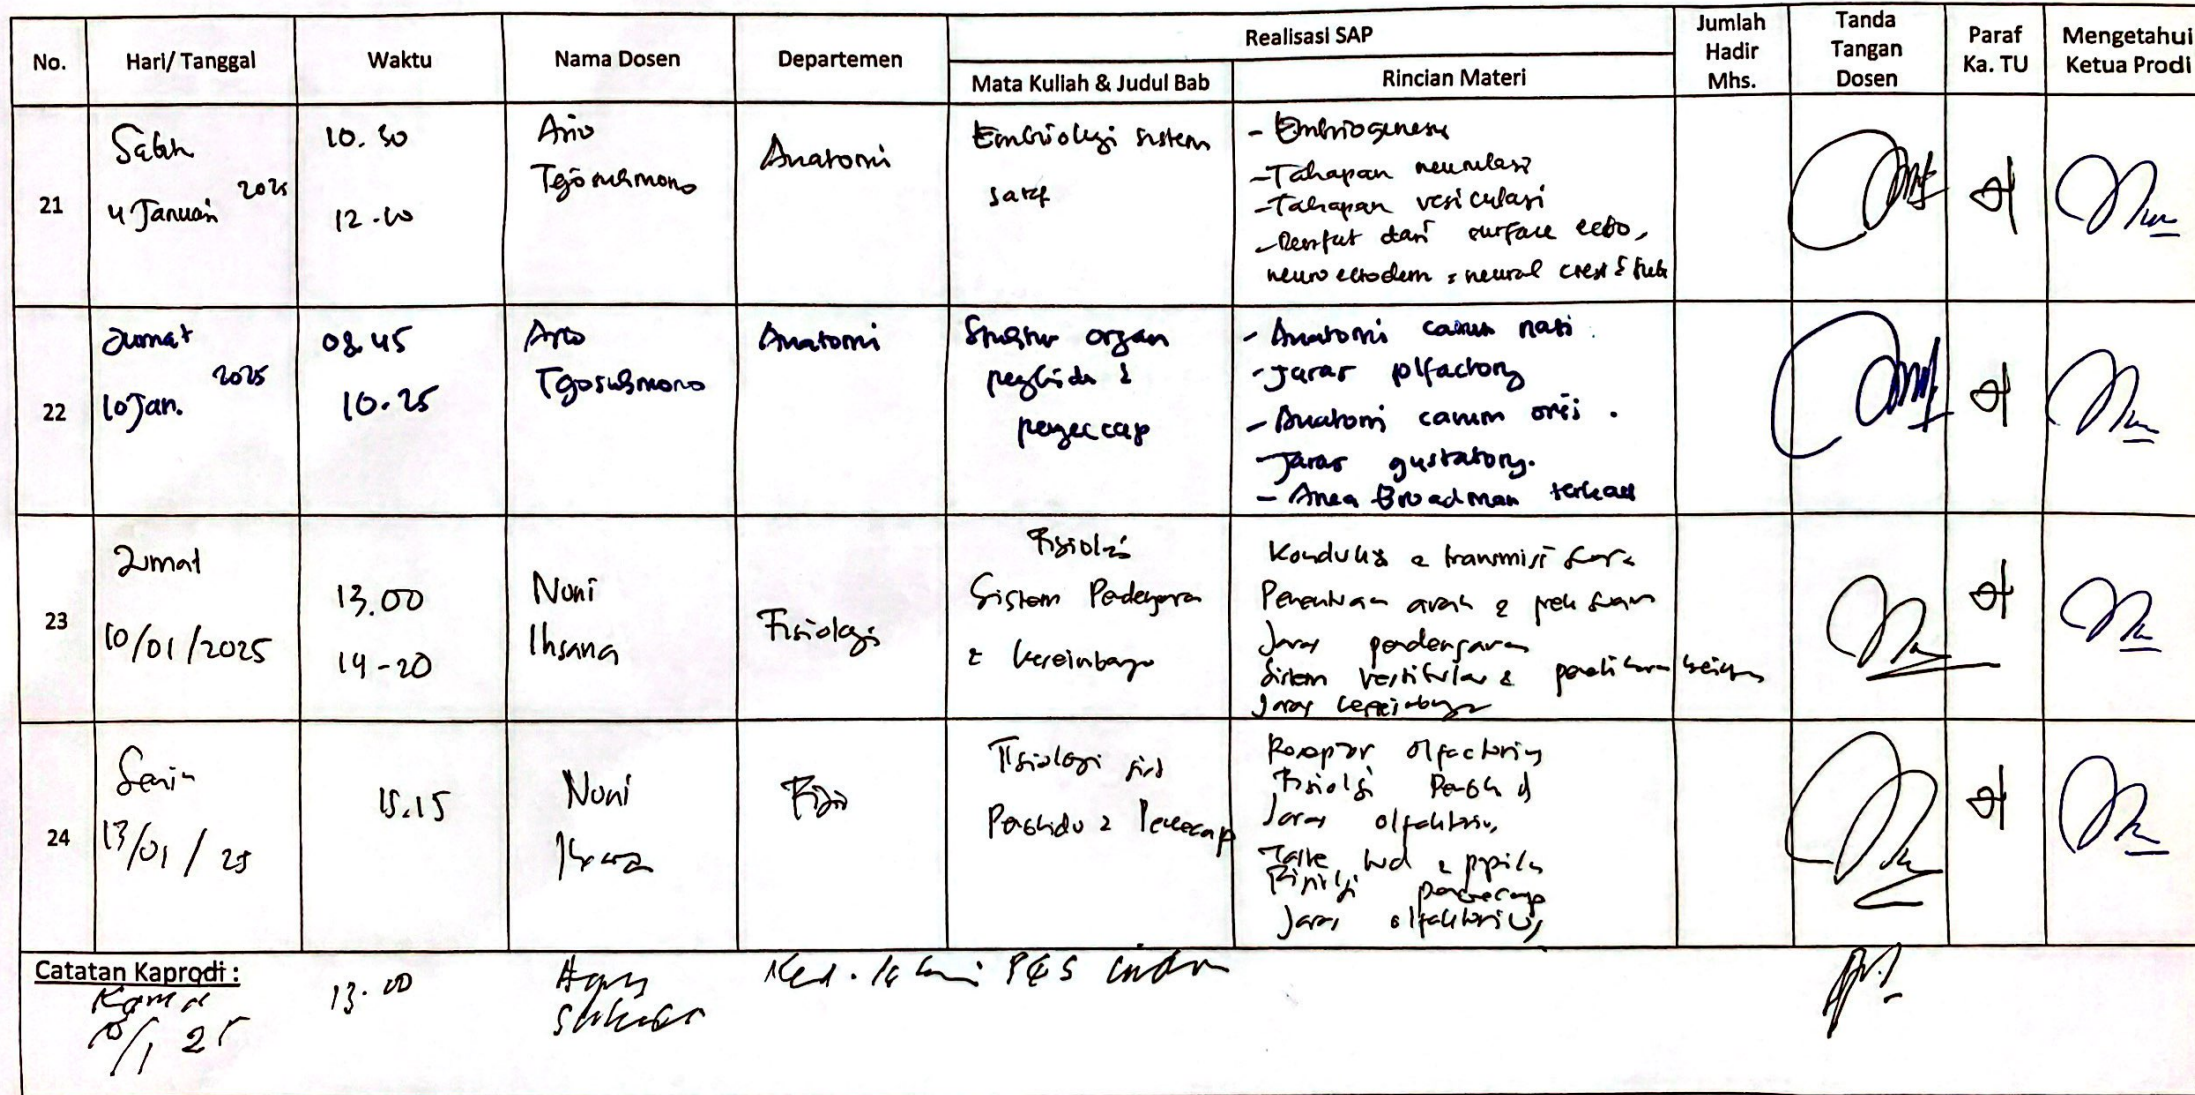 No.
Hari/ Tanggal
Waktu
Nama Dosen
Departemen
Realisasi SAP
Mata Kuliah & Judul Bab
Rincian Materi
Jumlah
Hadir
Mhs.
Tanda
Tangan
Dosen
Paraf
Ka. TU
Mengetahui
Ketua Prodi
21
4 Januari 2025
12.10
Ario
Anatomi
Embriologi sistem
saraf
- Embriogenesis
- Tahapan neurulasi
- Tahapan vesiculasi
dari surface ecto,
neuro ectoderm, neural crest &
22
Jumat
10 Jan. 2025
08.45
10.25
Ario
Anatomi
Struktur organ
penghidu &
pengecap
- Anatomi cavum nasi
- Jaras olfactory
- Anatomi cavum oris.
- Jaras gustatory.
- Area Broadman terkait
23
Jumat
10/01/2025
13.00
14-20
Nuni
Ihsana
Fisiologi
Fisiologi
Sistem Pendengaran
& keseimbangan
Konduksi & transmisi suara
Penentuan arah &
Jaras pendengaran
Sistem vestibular &
Jaras keseimbangan
24
Senin
13/01/25
15.15
Nuni
Ihsana
Fisio
Fisiologi
Penghidu & Pengecap
Reseptor olfactorius
Fisiologi
Jaras olfaktorius
Taste bud & papila
Fisiologi pengecap
Jaras olfaktorius
Catatan Kaprodi :
13.00